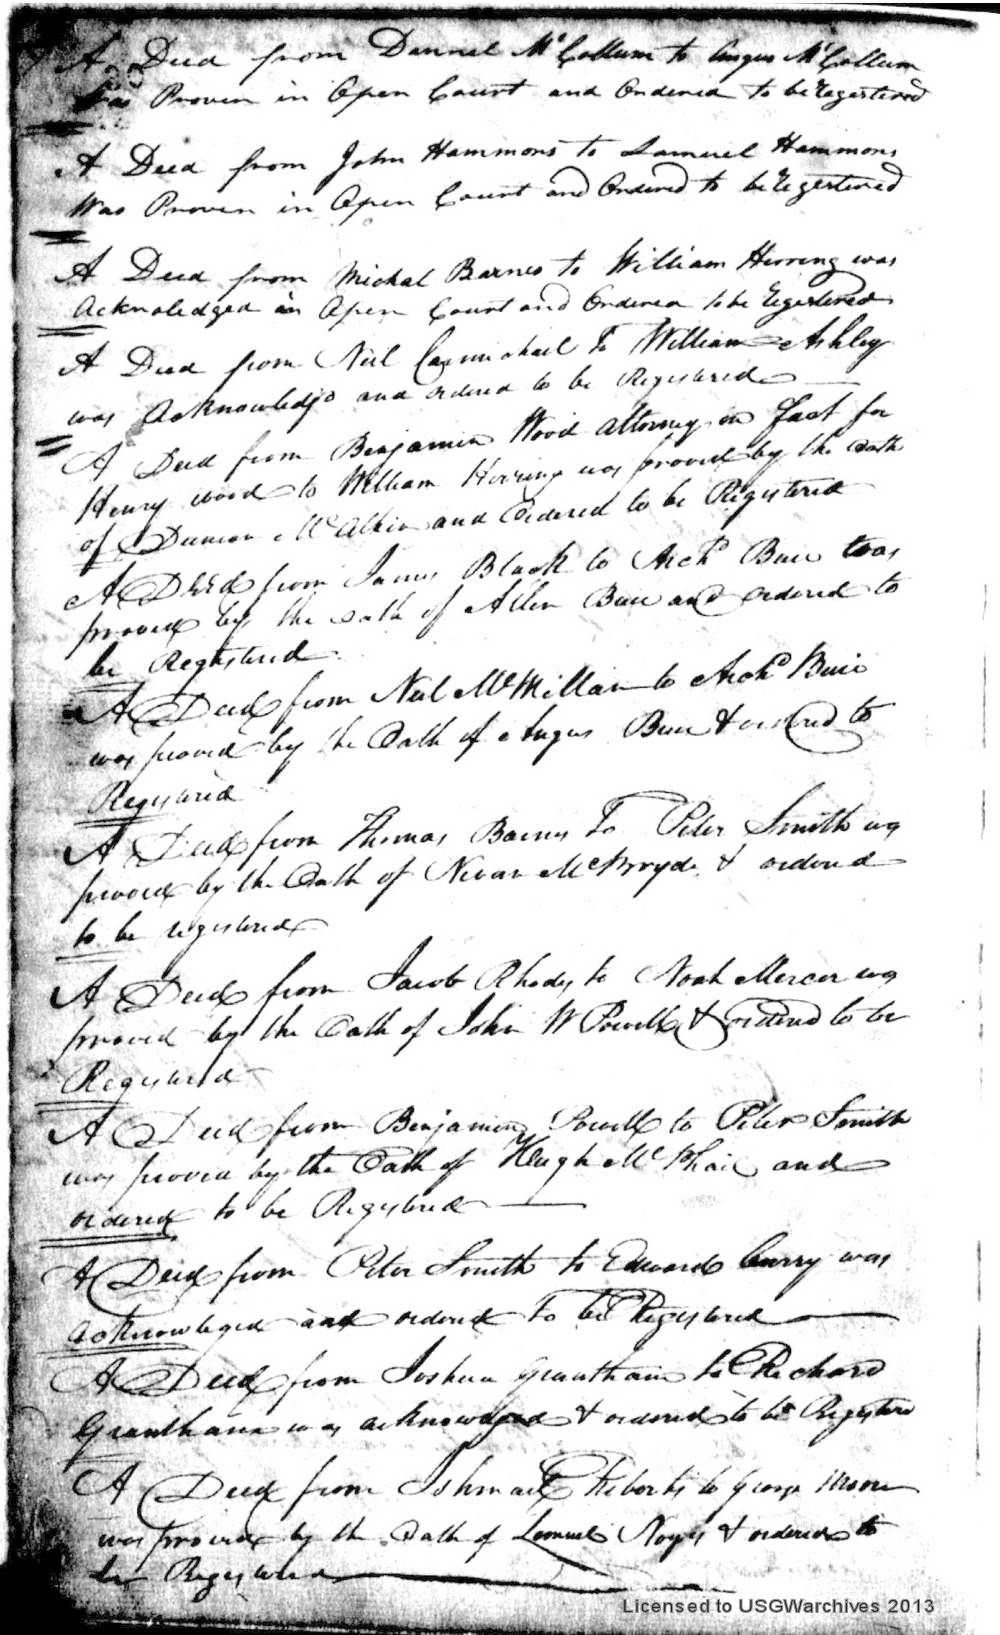 A Deed from Dannel McCollum to Angus McCollum
Was Proven in Open Court and Ordered to be Regestered
A Deed from John Hammons to Samuel Hammons
Was Proven in Open Court and Ordered to be Regestered
A Deed from Michal Barnes to William Herring was
Acknoledged in Open Court and Ordered to be Regestered
A Deed from Neil Carmichael To William Ashley
was Acknowledgd and ordered to be Registered
A Deed from Benjamin Wood Attorney in Fact for
Henry Wood to William Herring was proved by the oath
of Duncan and Ordered to be Registered
A Deed from James Black to Archd Buie was
proved by the oath of Allen Buie and ordered to
be Registered
A Deed from Neil McMillan to Archd Buie
was proved by the Oath of Angus Buie & ordered to
Registered
A Deed from Thomas Barnes To Peter Smith was
proved by the Oath of McBryde & ordered
to be registered
A Deed from Jacob Rhodes to Noah Mercer was
proved by the Oath of John W Powell & ordered to be
Registered
A Deed from Benjamin Powell to Peter Smith
was proved by the Oath of Hugh McPhail and
ordered to be Registered
A Deed from Peter Smith to Edward Curry was
acknowleged and ordered To be Registered
A Deed from Joshua Grantham to Richard
Grantham was acknowledged & ordered to be Registere
A Deed from Ishmael Roberts to George Moore
was proved by the Oath of Lemuel & ordered to
be Registered
Licensed to USGWarchives 2013